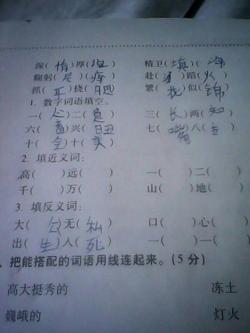 深(情)厚(谊) 精卫(填)(海)
鞠躬(尽)(瘁) 赴( )蹈(火)
抓(耳)挠(腮) 繁(花)似(锦)
1. 数字词语填空。
一(心)二(意) 三(长)两(短)
六(畜)兴(旺) 七(嘴)八(舌)
十(全)十(美)
2. 填近义词：
高( )远( ) 一( )二( )
千( )万( ) 山( )地( )
3. 填反义词：
大(公)无(私) 口( )心( )
出(生)入(死) 一( )一( )
把能搭配的词语用线连起来。(5分)
高大挺秀的 冻土
巍峨的 灯火